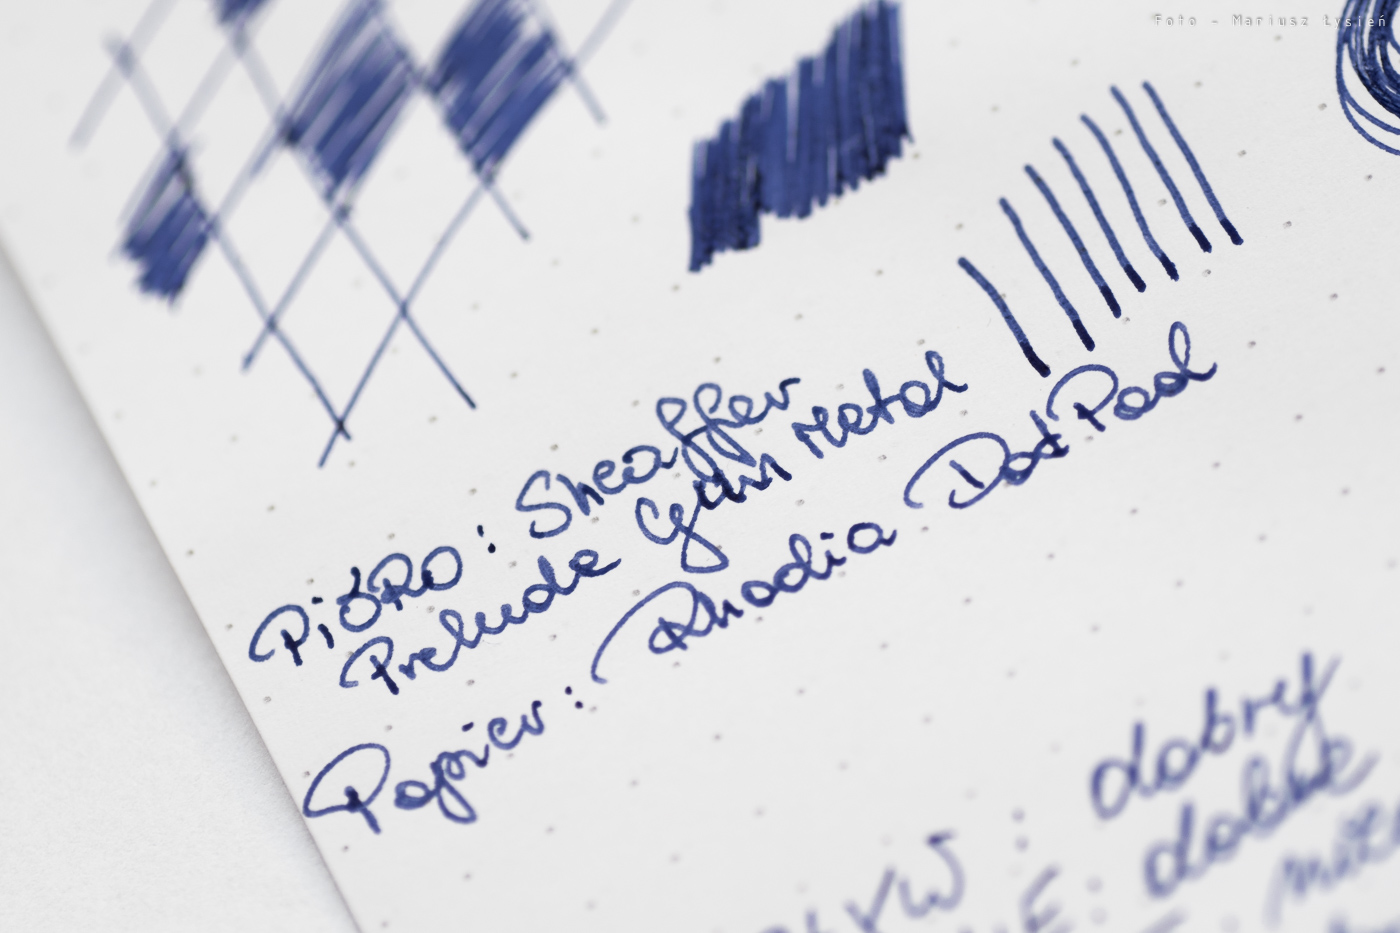 Foto - Mariusz Łysień
PiÓRO : Sheaffer
Prelude Gun Metal
Papier : Rhodia Dot Pad
dobry
dobre